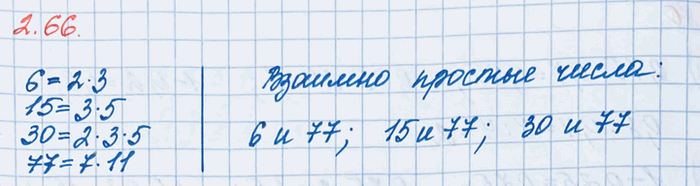 2.66.
6 = 2·3
15 = 3·5
30 = 2·3·5
77 = 7·11
Взаимно простые числа:
6 и 77; 15 и 77; 30 и 77